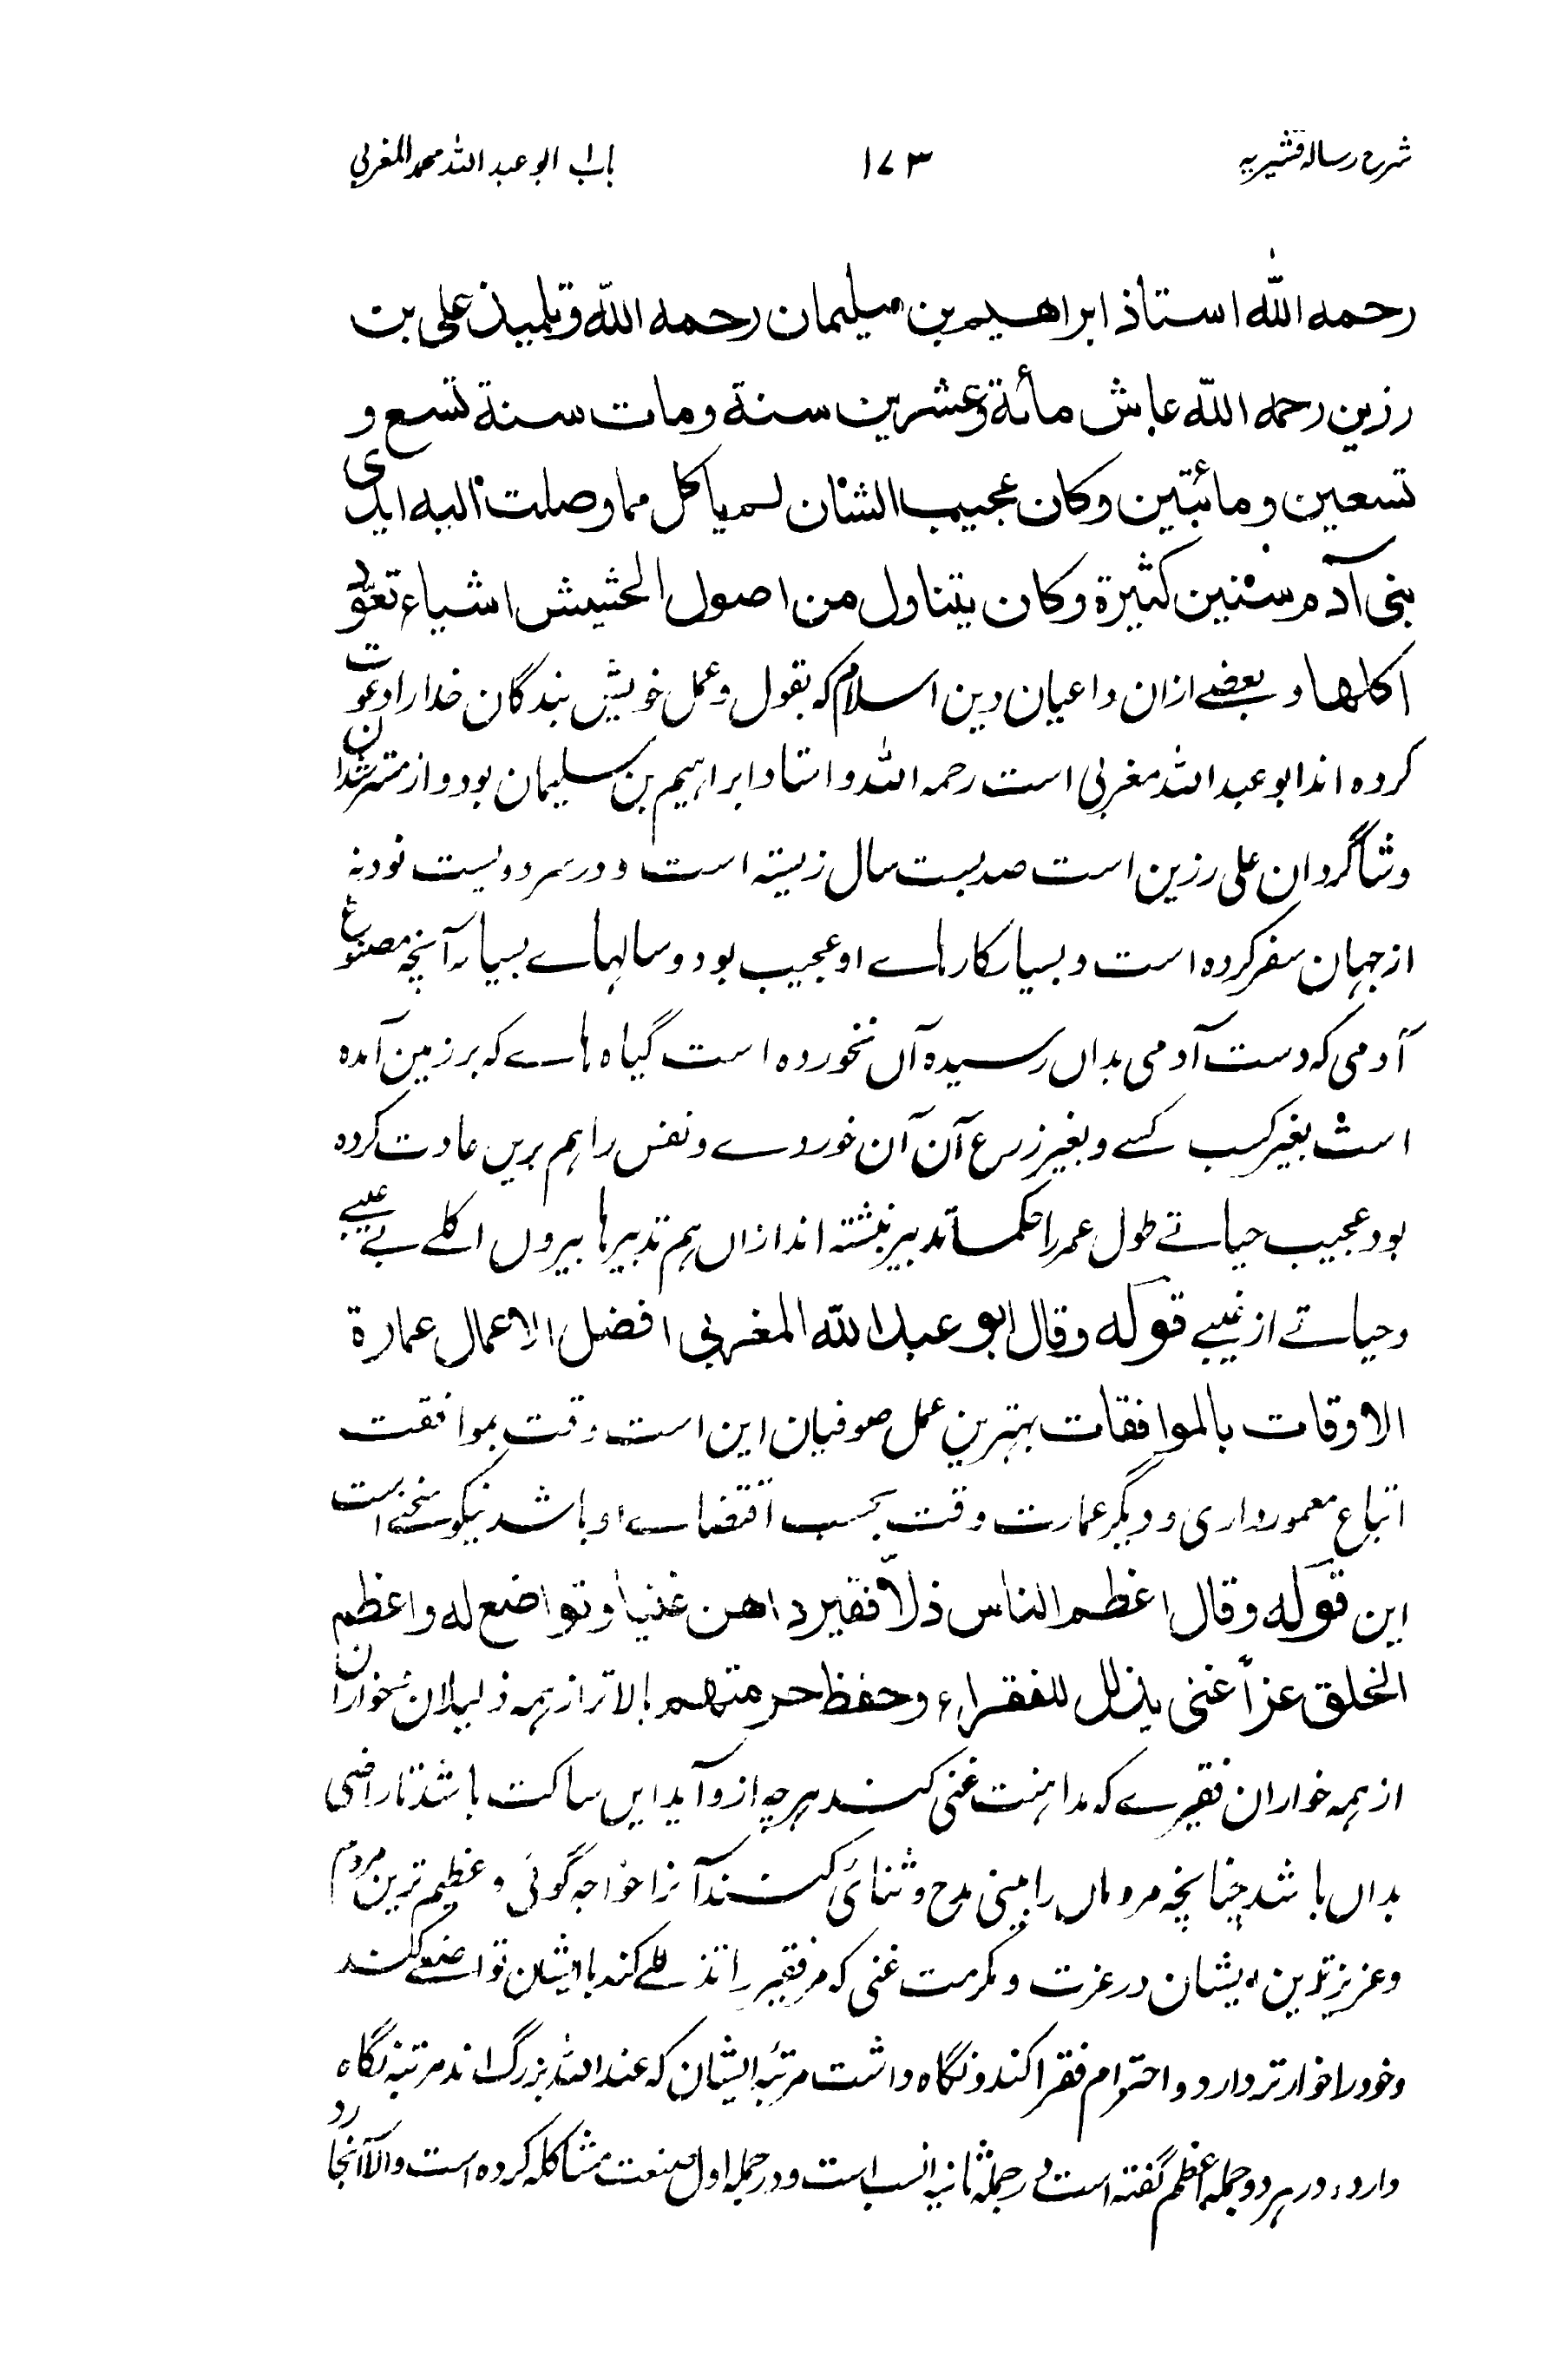 شرح رسالہ قشیریہ ۱۷۳ باب ابو عبد اللہ محمد المغربی
رحمه اللّٰه استاذ ابراهيم بن سليمان رحمه اللّٰه وتلميذ على بن
رزين رحمه اللّٰه عاش مائة وعشرين سنة ومات سنة تسع و
تسعين ومائتين وكان عجيب الشان لم ياكل مما وصلت اليه ايدى
بنى آدم سنين كثيرة وكان يتناول من اصول الحشيش اشياء تعوّد
اكلها و بعضے ازان داعیان دین اسلام که بقول و عمل خویش بندگان خدا را دعوت
کرده اند ابو عبد اللہ مغربی است رحمہ اللہ و استاد ابراہیم بن سلیمان بود و از مسترشدان
و شاگردان علی رزین است صد بست سال زیسته است و در سر دو لیست نود نہ
از جہان سفر کرده است و بسیار کارہاے او عجیب بود و سالہاے بسیار آنچہ مصنوع
آدمی کہ دست آدمی بداں رسیده آں نخورده است گیاه ہاے کہ بر زمین آمده
است بغیر کسب کسے و بغیر زرع آن آن خوردے و نفس را ہم بریں عادت کرده
بود عجیب حیاتے طول عمر را حکما تدبیر نبشتہ اند ازاں ہم تدبیرہا بیروں اکلے بے عیبے
و حیاتے از غیبے قوله وقال ابو عبد اللّه المغربى افضل الاعمال عمارة
الاوقات بالموافقات بہترین عمل صوفیان این است وقت بموافقت
اتباع معمور داری و دیگر عمارت وقت بحسب اقتضاے او باشد نیکو سخنے است
این قوله وقال اعظم الناس ذلاّ فقير داهن غنيا وتواضع له واعظم
الخلق عزاً غنى يذلل للفقراء وحفظ حرمتهم بالاتر از ہمہ ذلیلان و خواران
از ہمہ خواران فقیرے کہ مداہنت غنی کند ہرچہ ازو آید ایں ساکت باشد تا راضی
بداں باشد چنانچہ مردماں را بینی مدح و ثنائی کنند آنرا خواجہ گوئی و عظیم ترین مردم
و عزیز ترین ایشان در عزت و مکرمت غنی کہ مر فقیر را تذللے کند با ایشان تواضعے کند
و خود را خوار تر دارد و احترام فقرا کند و نگاه داشت مرتبۂ ایشان کہ عند اللہ بزرگ اند مرتبہ نگاه
دارد، در ہر دو جملہ اعظم گفتہ است در جملۂ ثانیہ انسب است و در جملہ اول صنعت مشاکلہ کرده است والا آنجا رد